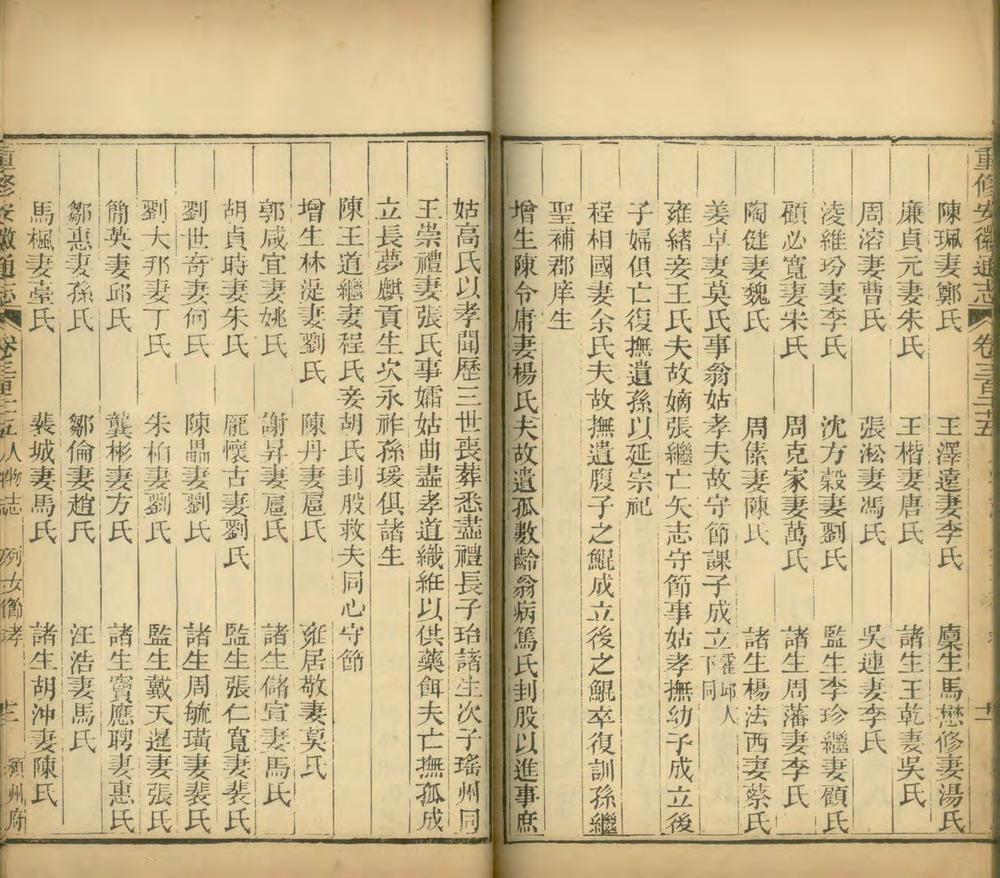 重修安徽通志 卷三百二十五
陳珮妻鄭氏 王澤遠妻李氏 廩生馬懋修妻湯氏
廉貞元妻朱氏 王楷妻唐氏 諸生王乾妻吳氏
周溶妻曹氏 張淞妻馮氏 吳連妻李氏
淩維玢妻李氏 沈方穀妻劉氏 監生李珍繼妻顧氏
顧必寬妻宋氏 周克家妻萬氏 諸生周藩妻李氏
陶健妻魏氏 周傃妻陳氏 諸生楊法西妻蔡氏
姜卓妻莫氏事翁姑孝夫故守節課子成立霍邱人下同
雍緒妾王氏夫故嫡張繼亡矢志守節事姑孝撫幼子成立後
子婦俱亡復撫遺孫以延宗祀
程相國妻余氏夫故撫遺腹子之鯤成立後之鯤卒復訓孫繼
聖補郡庠生
增生陳令庸妻楊氏夫故遺孤數齡翁病篤氏刲股以進事庶
姑高氏以孝聞歷三世喪葬悉盡禮長子珆諸生次子瑤州同
王崇禮妻張氏事孀姑曲盡孝道織紝以供藥餌夫亡撫孤成
立長夢麒貢生次永祚孫瑗俱諸生
陳王道繼妻程氏妾胡氏刲股救夫同心守節
增生林湜妻劉氏 陳丹妻扈氏 雍居敬妻莫氏
郭咸宜妻姚氏 謝昇妻扈氏 諸生儲宣妻馬氏
胡貞時妻朱氏 龎懷古妻劉氏 監生張仁寬妻裴氏
劉世奇妻何氏 陳讄妻劉氏 諸生周毓璜妻裴氏
劉大邦妻丁氏 朱柏妻劉氏 監生戴天暹妻張氏
簡英妻邱氏 龔彬妻方氏 諸生竇應聘妻惠氏
鄒惠妻孫氏 鄒倫妻趙氏 汪浩妻馬氏
馬楓妻臺氏 裴城妻馬氏 諸生胡沖妻陳氏
重修安徽通志 卷三百二十五 人物志 列女節孝 潁州府